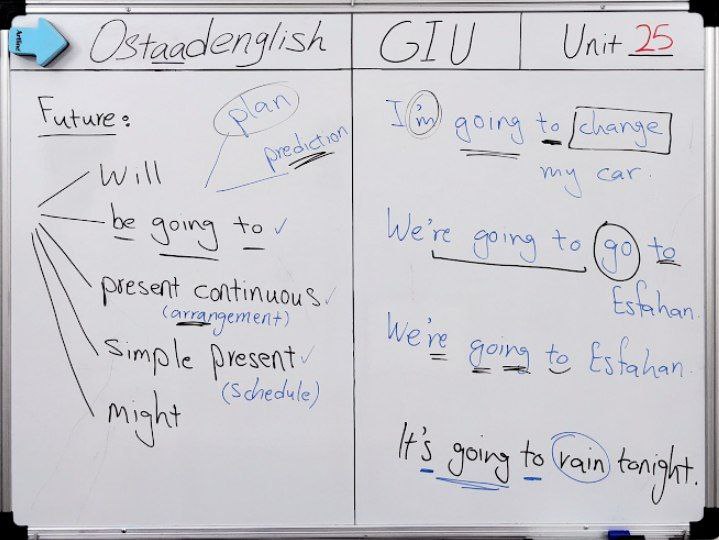 Artline
Ostaadenglish
GIU
Unit 25
Future:
plan
prediction
Will
be going to ✓
present continuous ✓
(arrangement)
Simple present ✓
(schedule)
might
I'm going to change
my car.
We're going to go to
Esfahan.
We're going to Esfahan.
It's going to rain tonight.